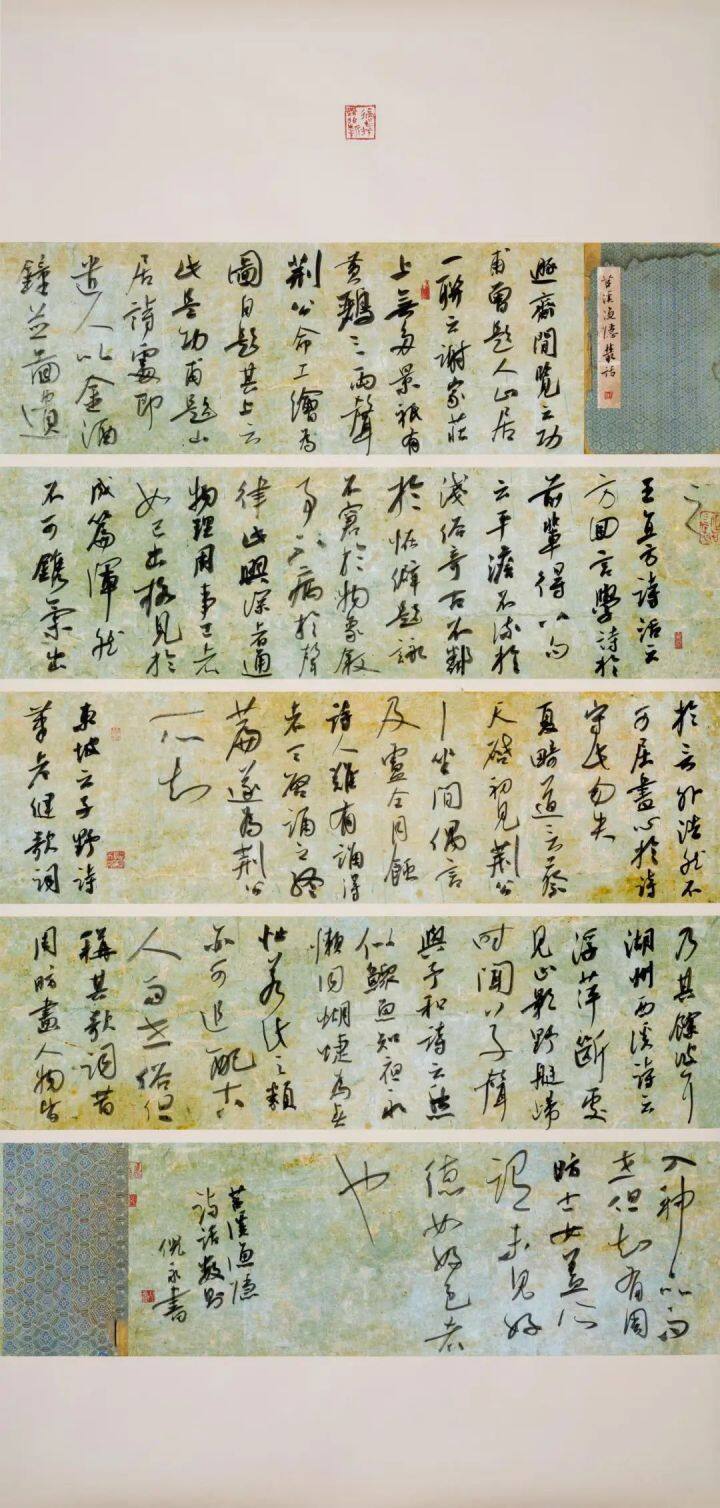 苕溪漁隱叢話
遯齋閒覧云功
甫曾題人山居
一聯云謝家莊
上無多景祇有
黃鸝三兩聲
荆公命工繪為
圖自題其上云
此是功甫題山
居詩處即
遣人以金酒
鐘並圖遺
之
王直方詩話云
方回言學詩於
前輩得八句
云平澹不流於
淺俗奇古不鄰
於怪僻題詠
不窘於物象叙
事不病於聲
律比興深者通
物理用事工者
如己出格見於
成篇渾然
不可鐫氣出
於言外浩然不
可屈盡心於詩
守此勿失
夏畸道言蔡
天啓初見荆公
坐間偶言
及盧仝月蝕
詩人難有誦得
者天啓誦之終
篇遂為荆公
所知
東坡云子野詩
筆老健歌詞
乃其餘波耳
湖州西溪詩云
浮萍斷處
見山影野艇歸
時聞草聲
與予和詩云愁
似鰥魚知夜永
懶同蝴蝶為春
忙若此之類
亦可追配古
人而世俗但
稱其歌詞昔
周昉畫人物皆
入神品而
世但知有周
昉士女蓋所
謂未見好
德如好色者
也
苕溪漁隱
詩話數則
倪永書